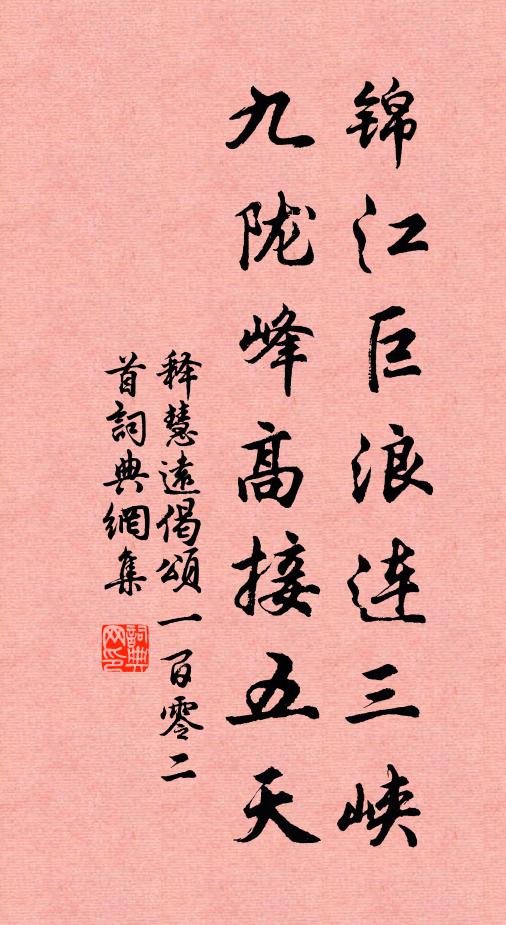 锦江巨浪连三峡
九陇峰高接五天
释慧遠偈頌一百零二
首詞典網集
詞典
网印